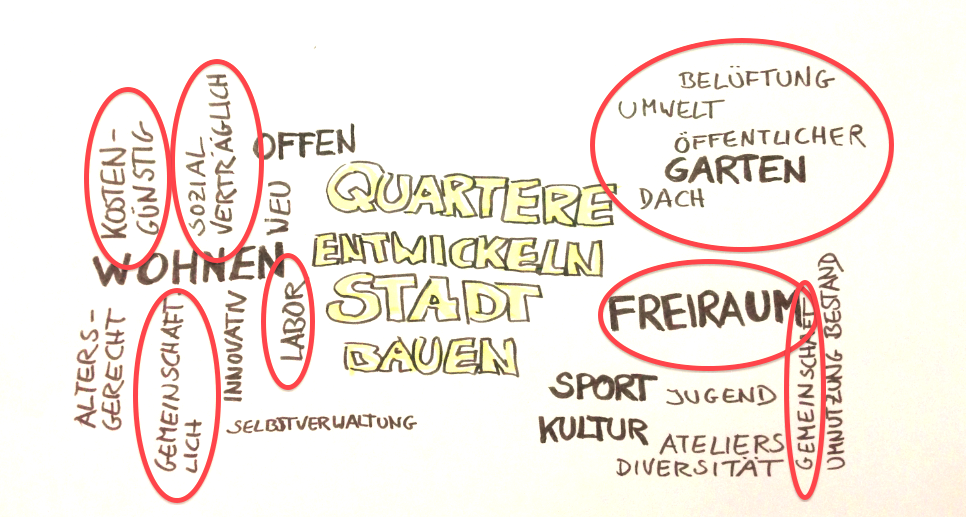 KOSTEN-
GÜNSTIG
SOZIAL
VERTRÄGLICH
OFFEN
NEU
WOHNEN
ALTERS-
GERECHT
GEMEINSCHAFT
LICH
INNOVATN
LABOR
SELBSTVERWALTUNG
QUARTERE
ENTWICKELN
STADT
BAUEN
BELÜFTUNG
UMWELT
ÖFFENTLICHER
GARTEN
DACH
FREIRAUM
SPORT JUGEND
KULTUR ATELIERS
DIVERSITÄT
GEMEINSCHAFT
UMNUTZUNG BESTAND